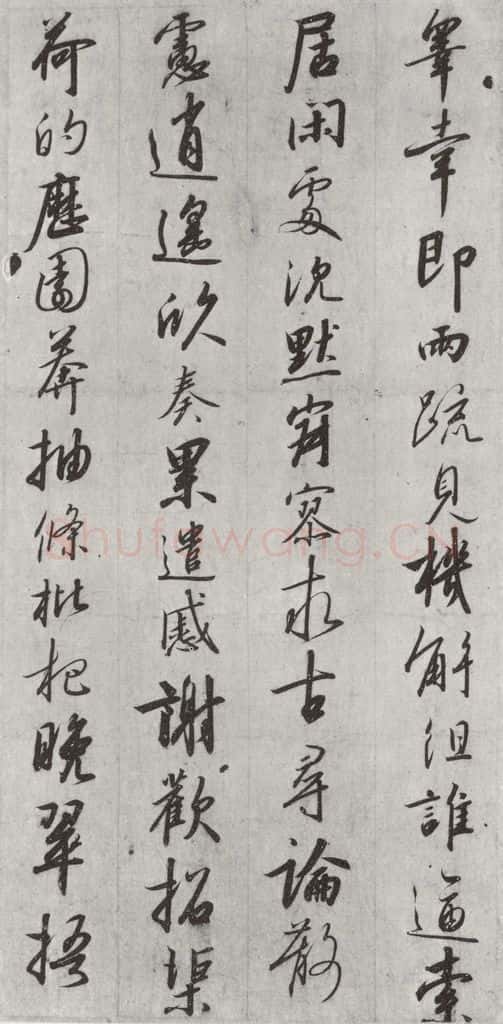 皋幸即兩疏見機解組誰逼索
居閑處沈默寂寥求古尋論散
慮逍遙欣奏累遣慼謝歡招渠
荷的歷園莽抽條枇杷晚翠梧
Shufawang.CN